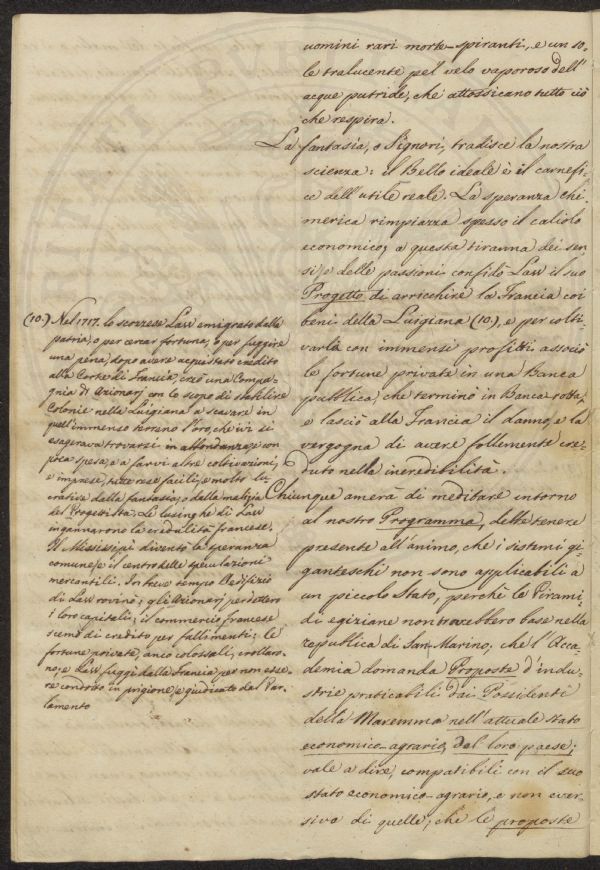 uomini rari morte-spiranti, e un so-
le tralucente pel velo vaporoso dell'
acque putride, che attossicano tutto ciò
che respira.
La fantasia, o Signori, tradisce la nostra
scienza: il Bello ideale è il carnefi-
ce dell'utile reale. La speranza chi-
merica rimpiazza spesso il calcolo
economico; a questa tiranna dei sen-
si, e delle passioni confidò Law il suo
Progetto di arricchire la Francia coi
beni della Luigiana (10.), e per colti-
varla con immensi profitti associò
le fortune private in una Banca
pubblica, che terminò in Banca-rotta,
e lasciò alla Francia il danno, e la
vergogna di avere follemente cre-
duto nella incredibilità.
Chiunque amerà di meditare intorno
al nostro Programma, dette tenere
presente all'animo, che i sistemi gi-
ganteschi non sono applicabili a
un piccolo Stato, perchè le Pirami-
di egiziane non troverebbero base nella
repubblica di San-Marino, che l'Acca-
demia domanda Proposte d'indu-
strie praticabili dai Possidenti
della Maremma nell'attuale stato
economico-agrario, del loro paese;
vale a dire, compatibili con il suo
stato economico-agrario, e non ever-
sivo di quelle; che le proposte
(10.) Nel 1717. lo scozzese Law emigrato dalla
patria, o per cercar fortuna, o per fuggire
una pena, dopo avere acquistato credito
alla Corte di Francia, creò una Compa-
gnia di Azionarj con lo scopo di stabilire
Colonie nella Luigiana a scavare in
quell'immenso terreno l'oro, che ivi si
esagerava trovarsi in abbondanza, e con
poca spesa, e a farvi altre coltivazioni,
e imprese, tutte rese facili, e molto lu-
crative dalla fantasia, o dalla malizia
del Progettista. Le lusinghe di Law
ingannarono la credulità francese.
Il Mississipì diventò la speranza
comune, e il centro delle speculazioni
mercantili. In breve tempo l'edifizio
di Law rovinò; gli Azionarj perdettero
i loro capitali; il commercio francese
scemò di credito per fallimenti; le
fortune private, anco colossali, crollaro-
no, e Law fuggì dalla Francia per non esse-
re condotto in prigione, e giudicato dal Par-
lamento